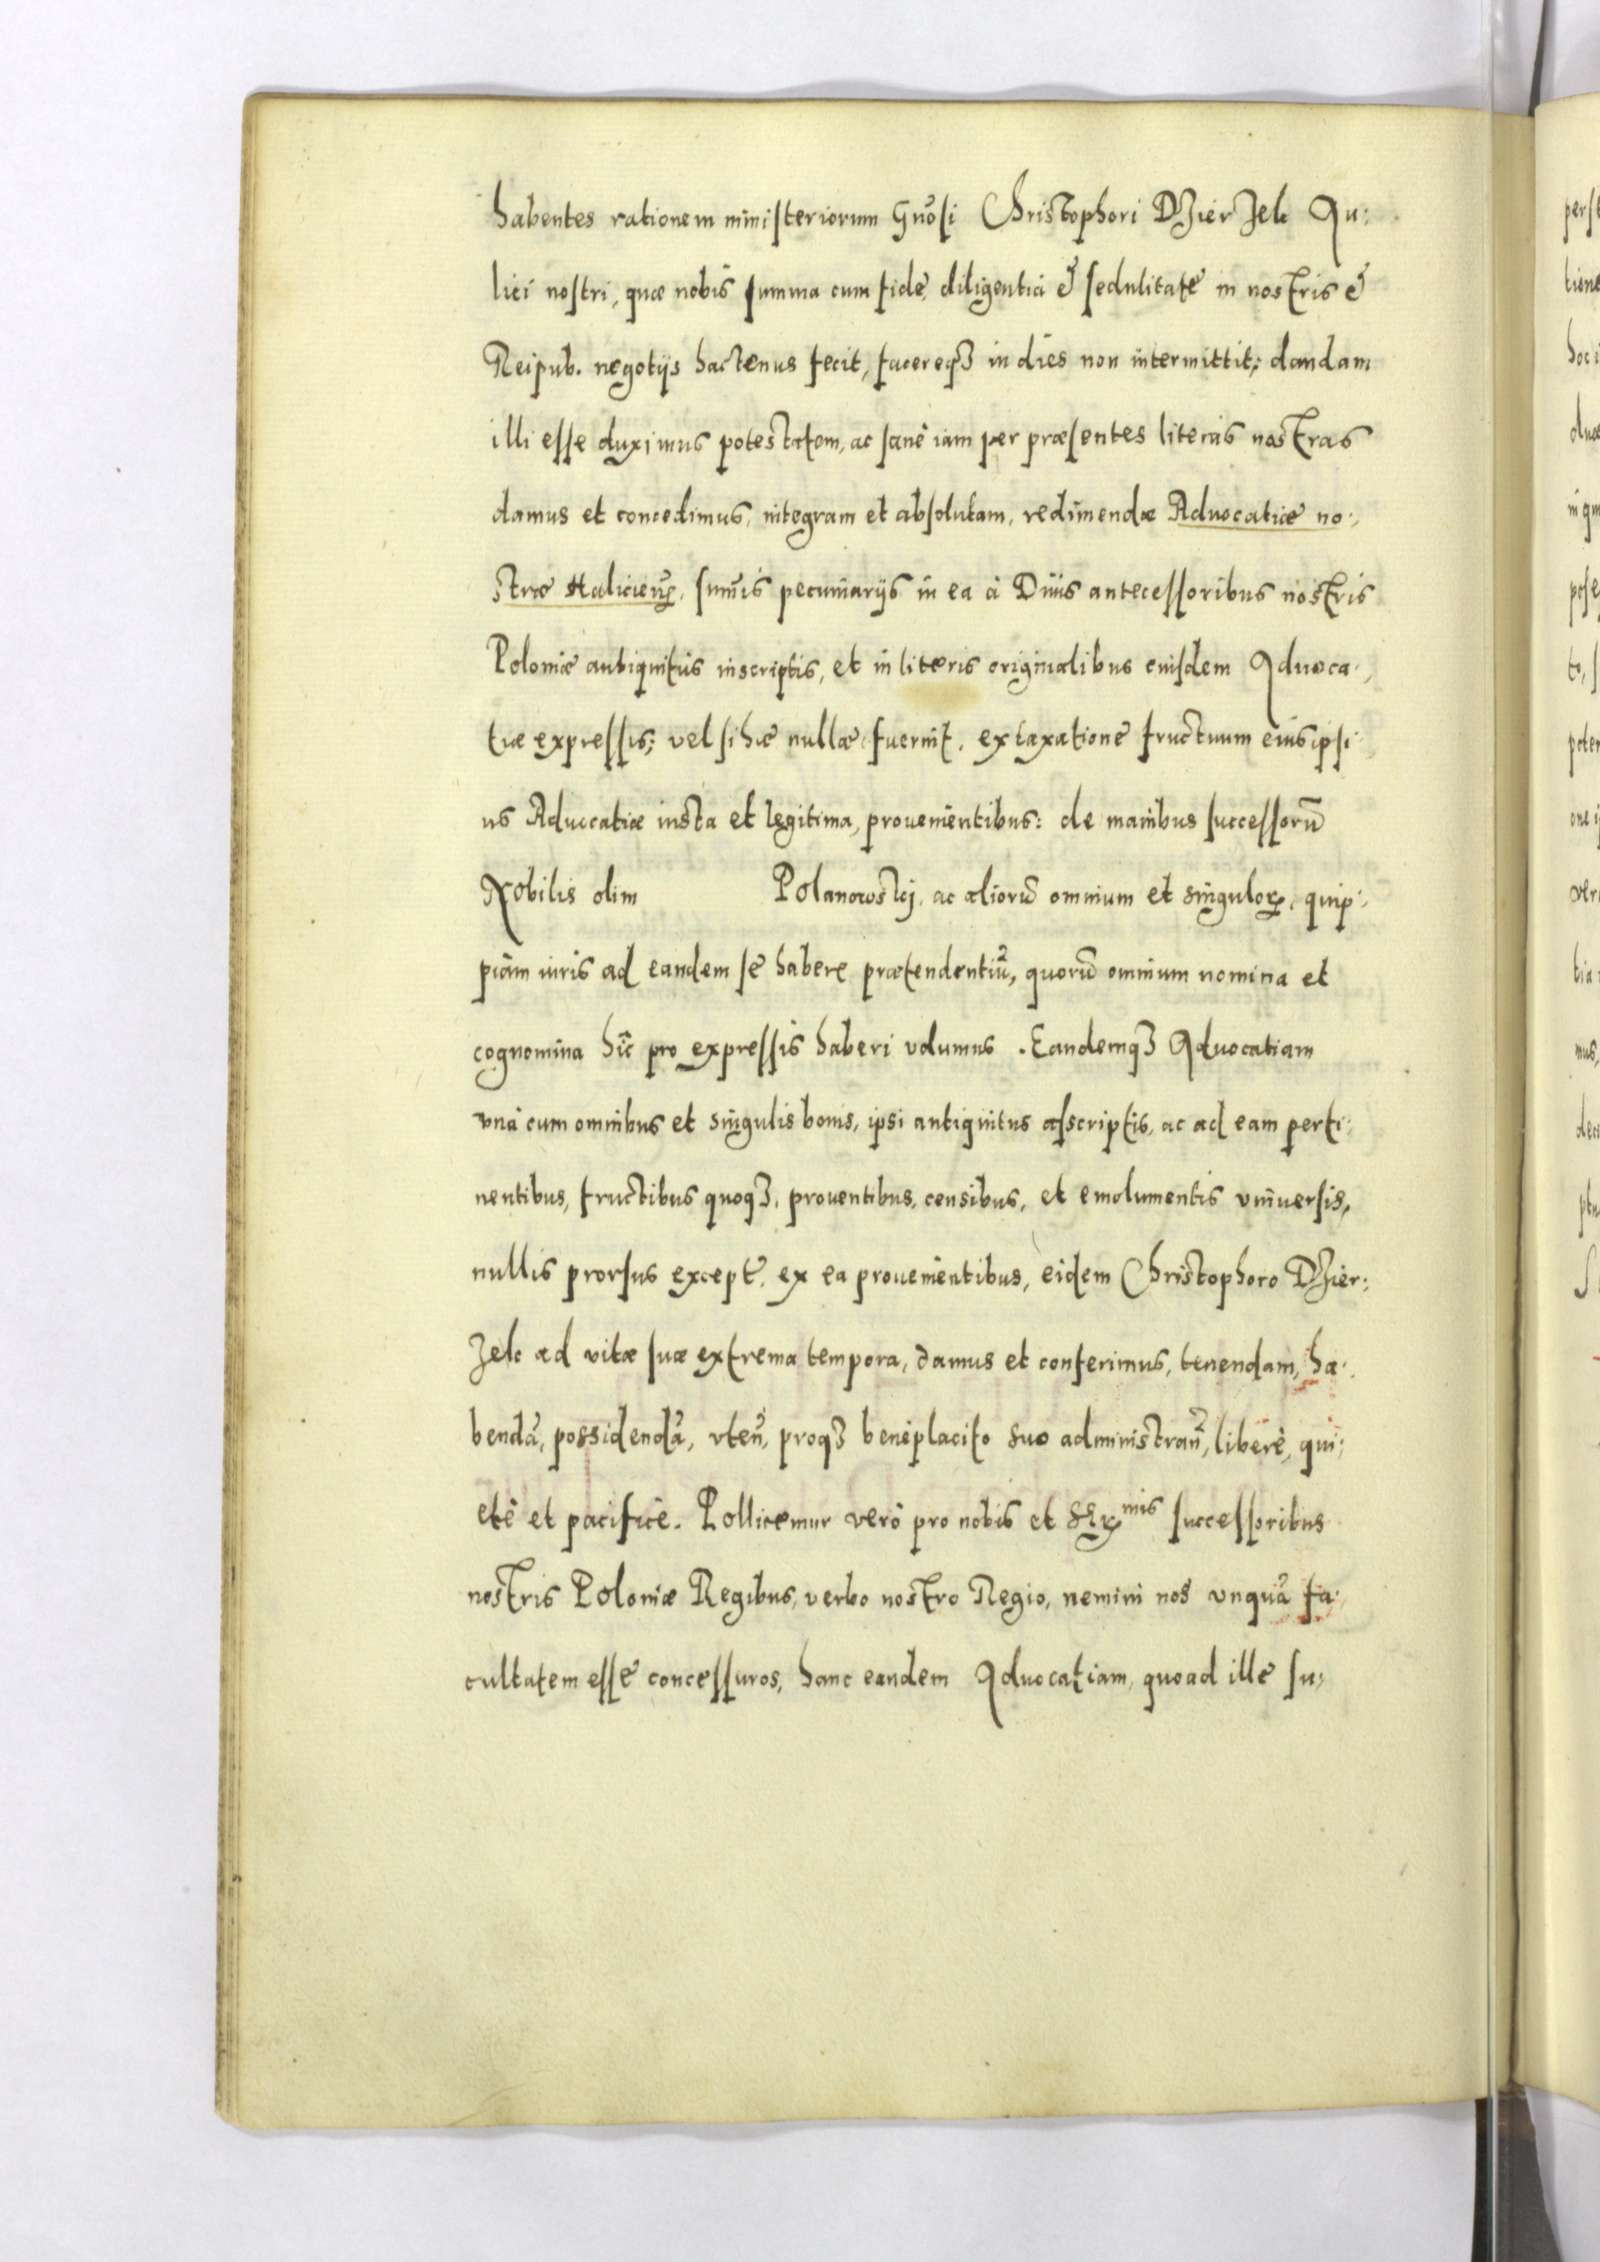 habentes rationem ministeriorum Gn̄osi Christophori DZierZek Au:
lici nostri, quæ nobis summa cum fide, diligentia & sedulitate in nostris &
Reipub. negotijs hactenus fecit, facereqȝ in dies non intermittit; dandam
illi esse duximus potestatem, ac sanè iam per præsentes literas nostras
damus et concedimus, integram et absolutam, redimendæ Aduocatiæ no:
stræ Halicieñ, sum̄is pecuniarijs in ea à Diuis antecessoribus nostris
Poloniæ antiquitus inscriptis, et in literis originalibus eiusdem Aduoca:
tiæ expressis; vel si hæ nullæ fuerint, ex taxatione fructuum eius ipsi:
us Aduocatiæ iusta et legitima, prouenientibus: de manibus successorū
Nobilis olim Polanowskj, ac aliorū omnium et singuloꝝ, quip:
piam iuris ad eandem se habere prætendentiū, quorū omnium nomina et
cognomina hîc pro expressis haberi volumus. Eandemqȝ Aduocatiam
vnà cum omnibus et singulis bonis, ipsi antiquitus asscriptis, ac ad eam perti:
nentibus, fructibus quoqȝ, prouentibus, censibus, et emolumentis vniuersis,
nullis prorsus except. ex ea prouenientibus, eidem Christophoro DZier:
Zek ad vitæ suæ extrema tempora, damus et conferimus, tenendam, ha:
bendā, possidendā, vteñ, proqȝ beneplacito suo administrañ, liberè, qui:
etè et pacificè. Pollicemur verò pro nobis et Serᵐⁱˢ successoribus
nostris Poloniæ Regibus, verbo nostro Regio, nemini nos vnquā fa:
cultatem esse concessuros, hanc eandem Aduocatiam, quoad ille su: